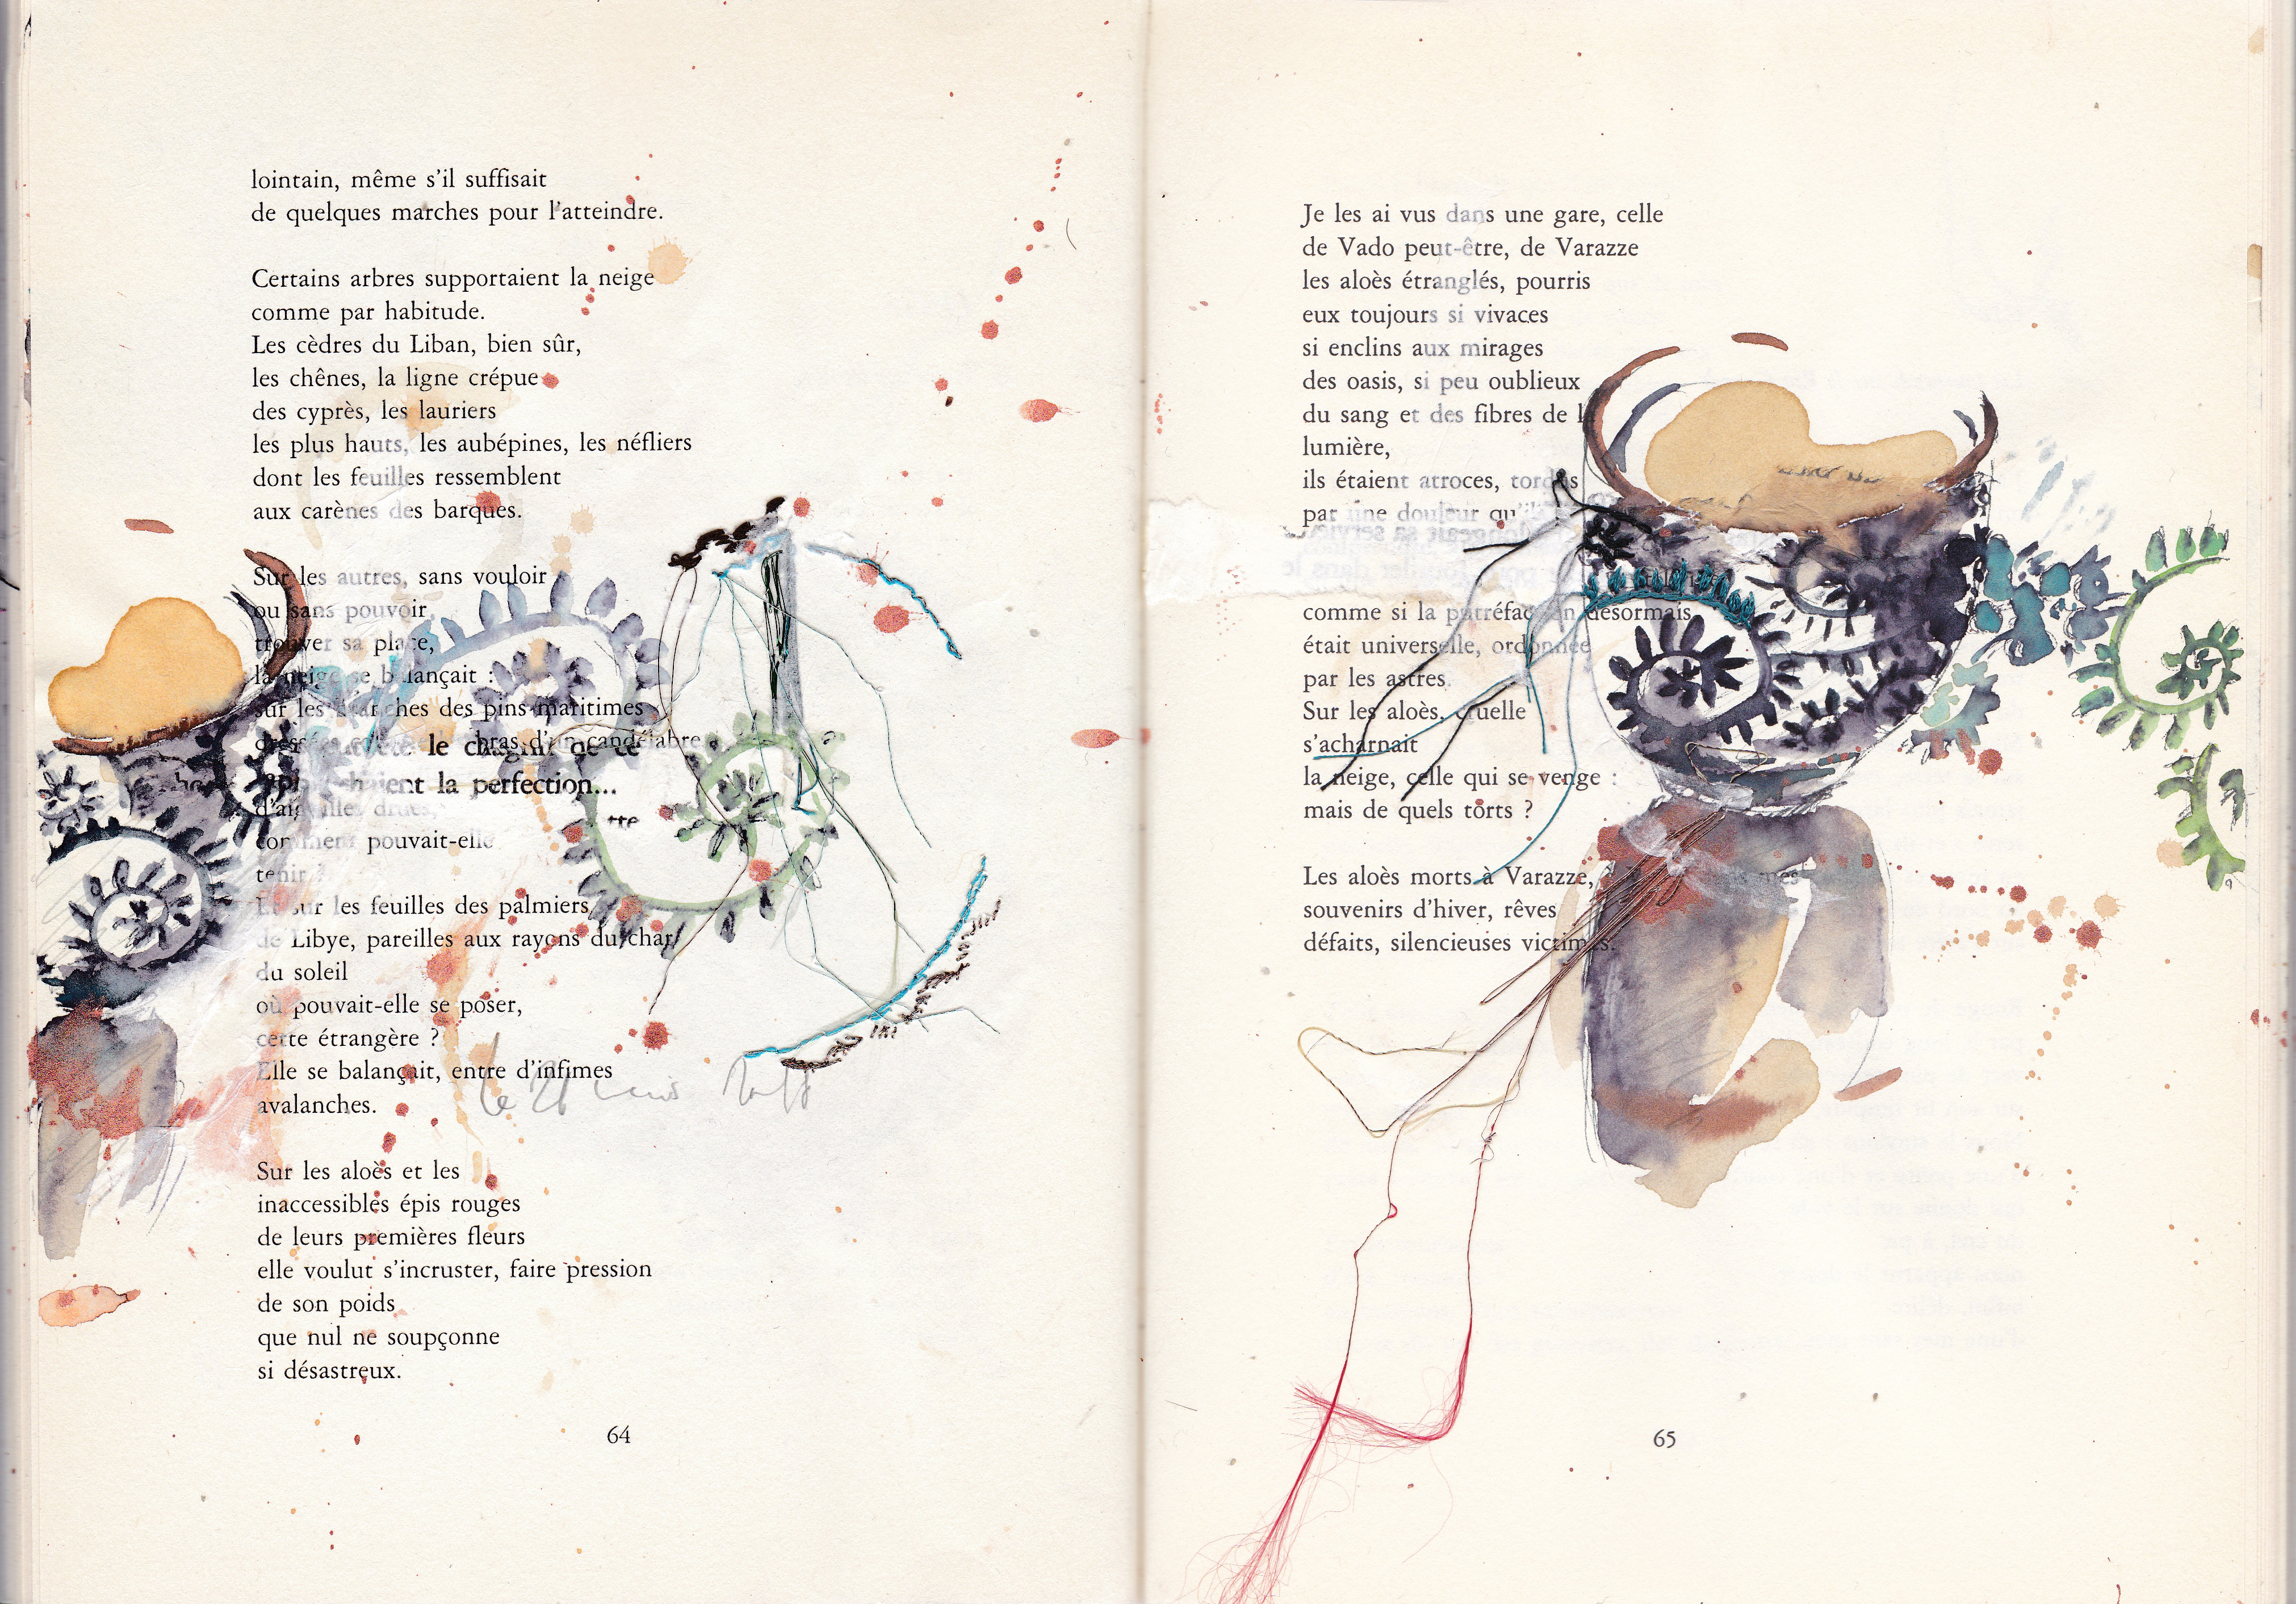 lointain, même s'il suffisait
de quelques marches pour l'atteindre.
Certains arbres supportaient la neige
comme par habitude.
Les cèdres du Liban, bien sûr,
les chênes, la ligne crépue
des cyprès, les lauriers
les plus hauts, les aubépines, les néfliers
dont les feuilles ressemblent
aux carènes des barques.
Sur les autres, sans vouloir
ou sans pouvoir
trouver sa place,
la neige se balançait :
sur les branches des pins maritimes
bras d'un candélabre
le chagrin de ce
la perfection...
d'aiguilles drues,
comment pouvait-elle
tenir ?
Et sur les feuilles des palmiers
de Libye, pareilles aux rayons du char
du soleil
où pouvait-elle se poser,
cette étrangère ?
Elle se balançait, entre d'infimes
avalanches.
Sur les aloès et les
inaccessibles épis rouges
de leurs premières fleurs
elle voulut s'incruster, faire pression
de son poids
que nul ne soupçonne
si désastreux.
64
Je les ai vus dans une gare, celle
de Vado peut-être, de Varazze
les aloès étranglés, pourris
eux toujours si vivaces
si enclins aux mirages
des oasis, si peu oublieux
du sang et des fibres de l
lumière,
ils étaient atroces, tordus
par une douleur qu'il
comme si la putréfaction désormais
était universelle, ordonnée
par les astres.
Sur les aloès, cruelle
s'acharnait
la neige, celle qui se venge :
mais de quels torts ?
Les aloès morts à Varazze,
souvenirs d'hiver, rêves
défaits, silencieuses victimes.
65